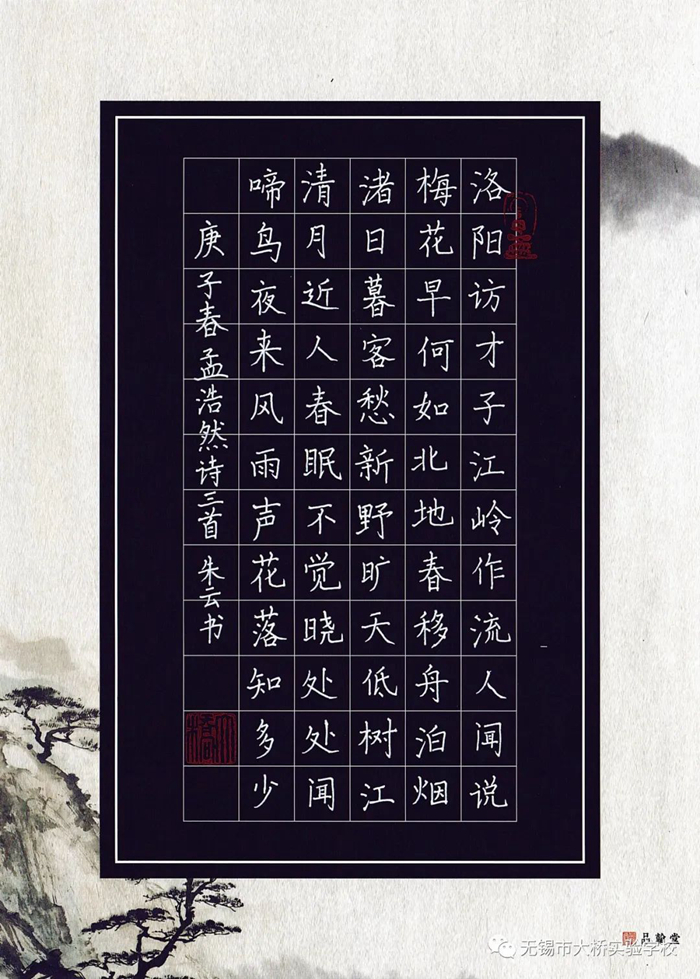 洛阳访才子江岭作流人闻说
梅花早何如北地春移舟泊烟
渚日暮客愁新野旷天低树江
清月近人春眠不觉晓处处闻
啼鸟夜来风雨声花落知多少
庚子春孟浩然诗三首 朱云书
无锡市大桥实验学校